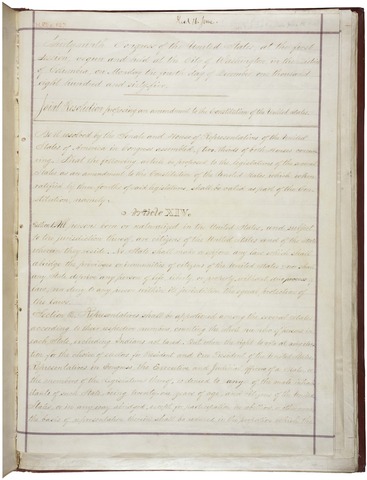 Congress of the United States, at the first
Session, begun and held at the City of Washington, in the
on Monday the fourth day of December one thousand
eight hundred and sixty-five
Joint Resolution proposing an amendment to the Constitution of the United States.
Be it resolved by the Senate and House of Representatives of the United
States of America in Congress assembled, (two thirds of both Houses
That the following article be proposed to the legislatures of the several
States as an amendment to the Constitution of the United States, which, when
ratified by three fourths of said legislatures, shall be valid as part of the Con-
stitution, namely:
Article XIV.
Section 1. All persons born or naturalized in the United States, and subject
to the jurisdiction thereof, are citizens of the United States and of the State
wherein they reside. No State shall make or enforce any law which shall
abridge the privileges or immunities of citizens of the United States; nor shall
any State deprive any person of life, liberty, or property, without due process
nor deny to any person within its jurisdiction the equal protection of
the laws.
Section 2. Representatives shall be apportioned among the several States
according to their respective numbers, counting the whole number of persons in
each State, excluding Indians not taxed. But when the right to vote at any elec-
tion for the choice of electors for President and Vice President of the United States,
Representatives in Congress, the Executive and Judicial officers of a State, or
the members of the Legislature thereof, is denied to any of the male inhabi-
tants of such State, being twenty-one years of age, and citizens of the United
States, or in any way abridged, except for participation in rebellion or other crime,
the basis of representation therein shall be reduced in the proportion which the